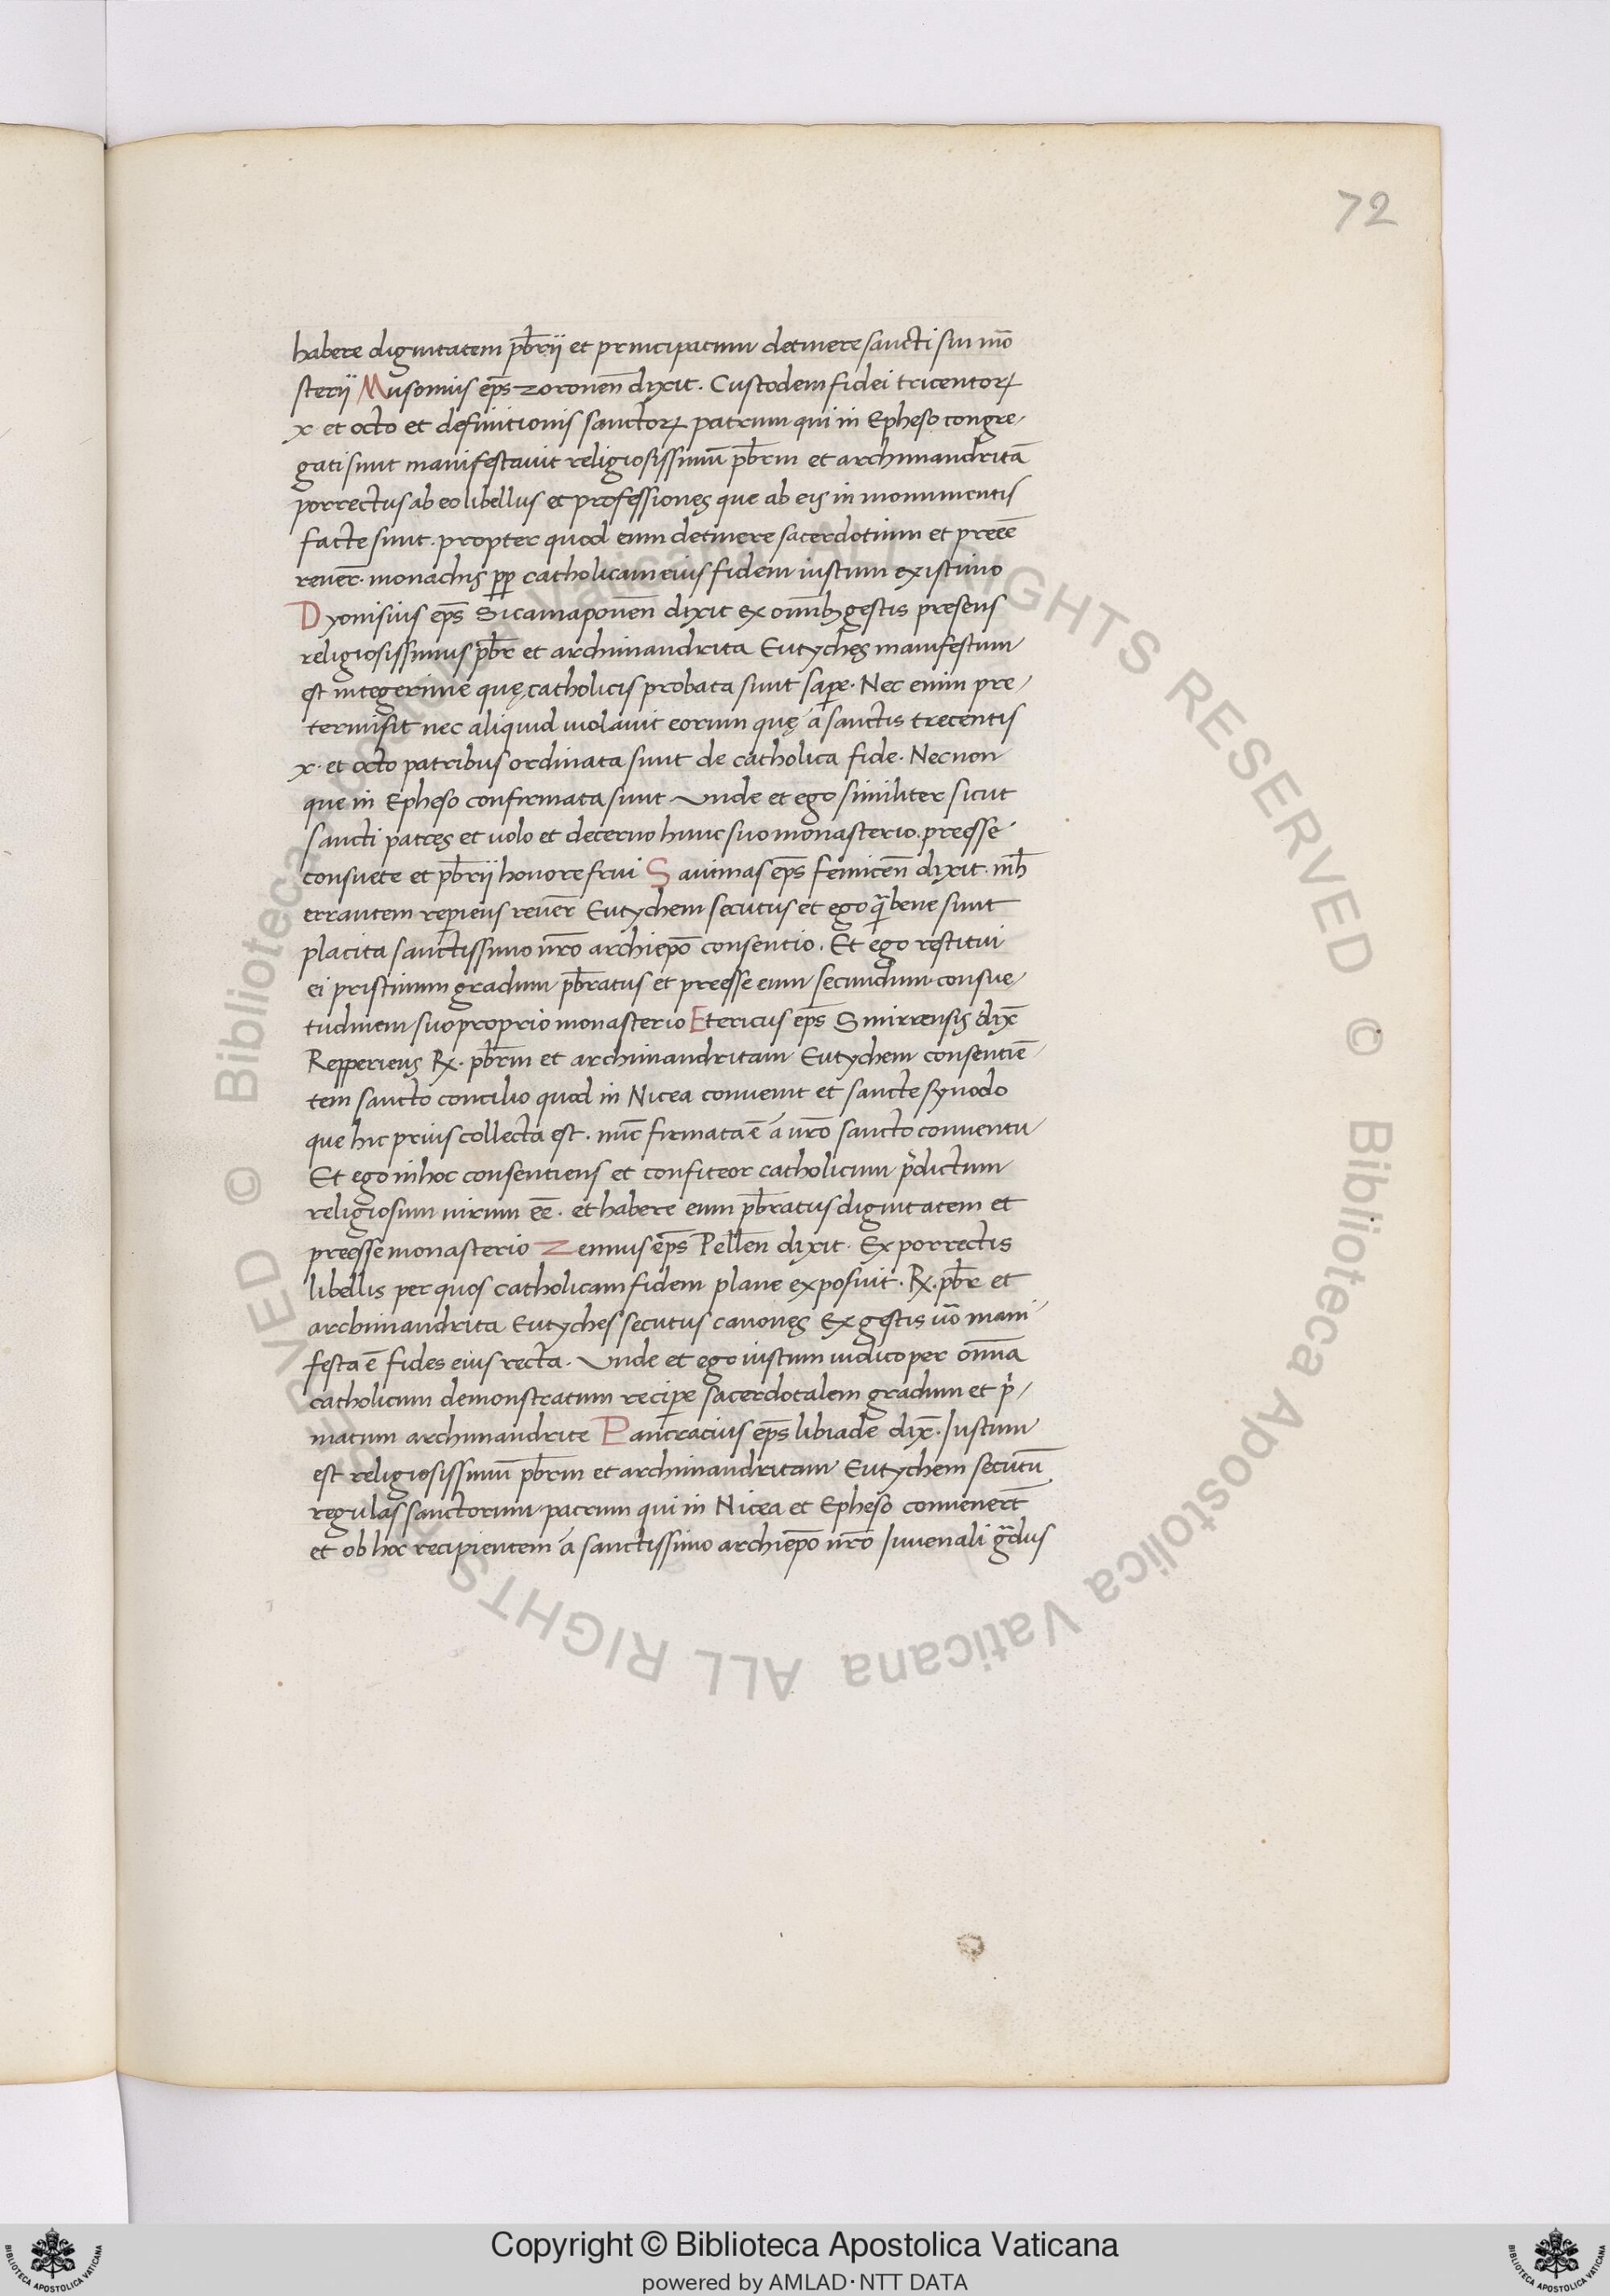 72
habere dignitatem pb̄rii et principatum detinere sancti sui mo͞
sterii Musonius ep̄s zoronen̄ dixit. Custodem fidei tricentoꝝ
x et octo et definitionis sanctoꝝ patrum qui in Epheso congre-
gati sunt manifestavit religiosissimū pb̄rm et archimandritā
porrectus ab eo libellus et professiones que ab eis in monumentis
facte sunt. propter quod eum detinere sacerdotium et preeē
reuer̄. monachis pp̄ catholicam eius fidem iustum existimo
Dyonisius ep̄s Sicamaponen̄ dixit ex omībꝫ gestis presens
religiosissimus pb̄r et archimandrita Eutyches manifestum
est integerime quę catholicis probata sunt sapꝑe. Nec enim pre-
termisit nec aliquid violavit eorum quę a sanctis trecentis
x. et octo patribus ordinata sunt de catholica fide. Necnon
que in Epheso confirmata sunt Unde et ego similiter sicut
sancti patres et uolo et decerno hunc suo monasterio. preesse
consuete et pb̄rii honore frui Savinas ep̄s femicen̄ dixit. nih̄
errantem repiens reuer̄ Eutychem secutus et ego q̄ bene sunt
placita sanctissimo nr̄o archiep̄o consentio. Et ego restitui
ei pristinum gradum pb̄ratus et preesse eum secundum consue-
tudinem suo proprio monasterio Etericus ep̄s Smirrensis dix̄
Repperiens Rx. pb̄rm et archimandritam Eutychem consentiē-
tem sancto concilio quod in Nicea convenit et sancte synodo
que hic prius collecta est. nūc firmata ē a ur̄o sancto conventu
Et ego in hoc consentiens et confiteor catholicum p̄dictum
religiosum uirum eē. et habere eum pb̄ratus dignitatem et
preesse monasterio Zennus ep̄s Pellen̄ dixit. Ex porrectis
libellis per quos catholicam fidem plane exposuit. Rx. pb̄r et
archimandrita Eutyches secutus canones Ex gestis uō mani-
festa ē fides eius recta. Unde et ego iustum iudico per om̄ia
catholicum demonstratum recipe sacerdotalem gradum et p̄-
matum archimandrite Pancracius ep̄s libiade͞ dix̄. Justum
est religiosissimū pb̄rm et archimandritam Eutychem secutū
regulas sanctorum patrum qui in Nicea et Epheso convenert̄
et ob hoc recipientem a sanctissimo archiep̄o nr̄o Juvenali g̃dus
© Biblioteca Apostolica Vaticana ALL RIGHTS RESERVED
© Biblioteca Apostolica Vaticana ALL RIGHTS RESERVED
Copyright © Biblioteca Apostolica Vaticana
powered by AMLAD·NTT DATA
BIBLIOTECA APOSTOLICA VATICANA
BIBLIOTECA APOSTOLICA VATICANA